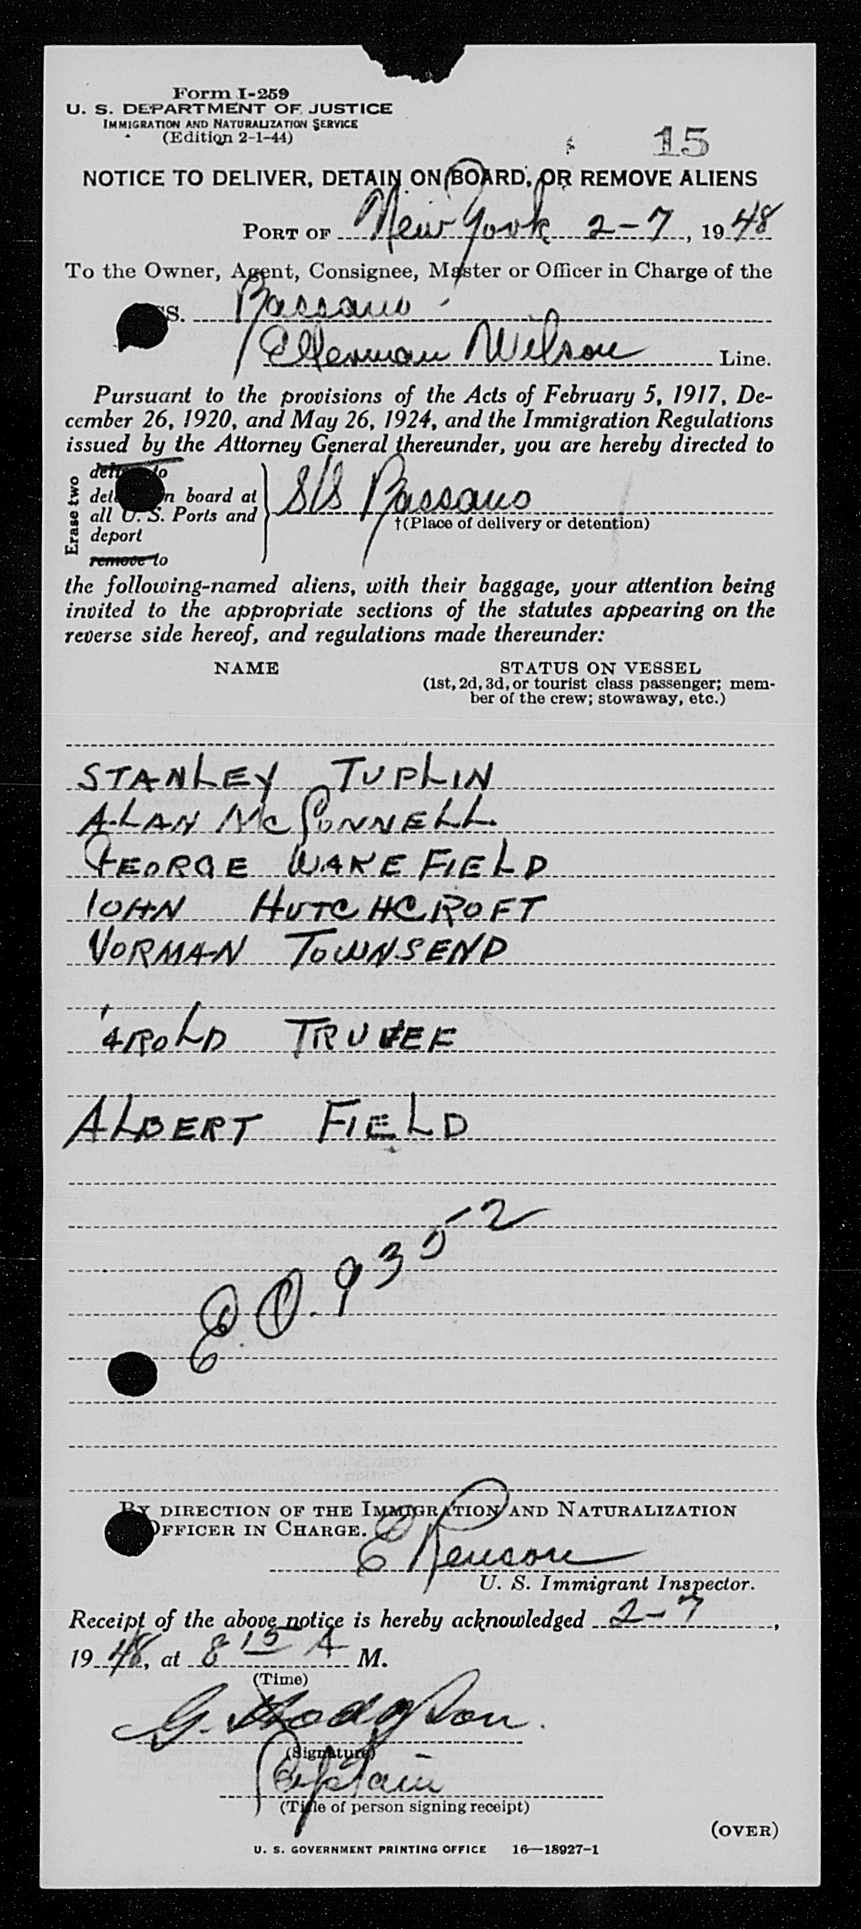 Form I-259
U. S. DEPARTMENT OF JUSTICE
IMMIGRATION AND NATURALIZATION SERVICE
(Edition 2-1-44)
15
NOTICE TO DELIVER, DETAIN ON BOARD, OR REMOVE ALIENS
PORT OF New York 2-7, 1948
To the Owner, Agent, Consignee, Master or Officer in Charge of the
SS. Bassano
Ellerman Wilson Line.
Pursuant to the provisions of the Acts of February 5, 1917, De-
cember 26, 1920, and May 26, 1924, and the Immigration Regulations
issued by the Attorney General thereunder, you are hereby directed to
Erase two
board at
all U. S. Ports and
deport
remove to
S/S Bassano
†(Place of delivery or detention)
the following-named aliens, with their baggage, your attention being
invited to the appropriate sections of the statutes appearing on the
reverse side hereof, and regulations made thereunder:
NAME STATUS ON VESSEL
(1st, 2d, 3d, or tourist class passenger; mem-
ber of the crew; stowaway, etc.)
STANLEY TUPLIN
ALAN McCONNELL
GEORGE WAKEFIELD
JOHN HUTCHCROFT
NORMAN TOWNSEND
AROLD
ALBERT FIELD
E.O. 9352
BY DIRECTION OF THE IMMIGRATION AND NATURALIZATION
OFFICER IN CHARGE.
E
U. S. Immigrant Inspector.
Receipt of the above notice is hereby acknowledged 2-7,
1948, at 8 15 A M.
(Time)
G. Hodgson.
(Signature)
Captain
(Title of person signing receipt)
(OVER)
U. S. GOVERNMENT PRINTING OFFICE 16—18927-1